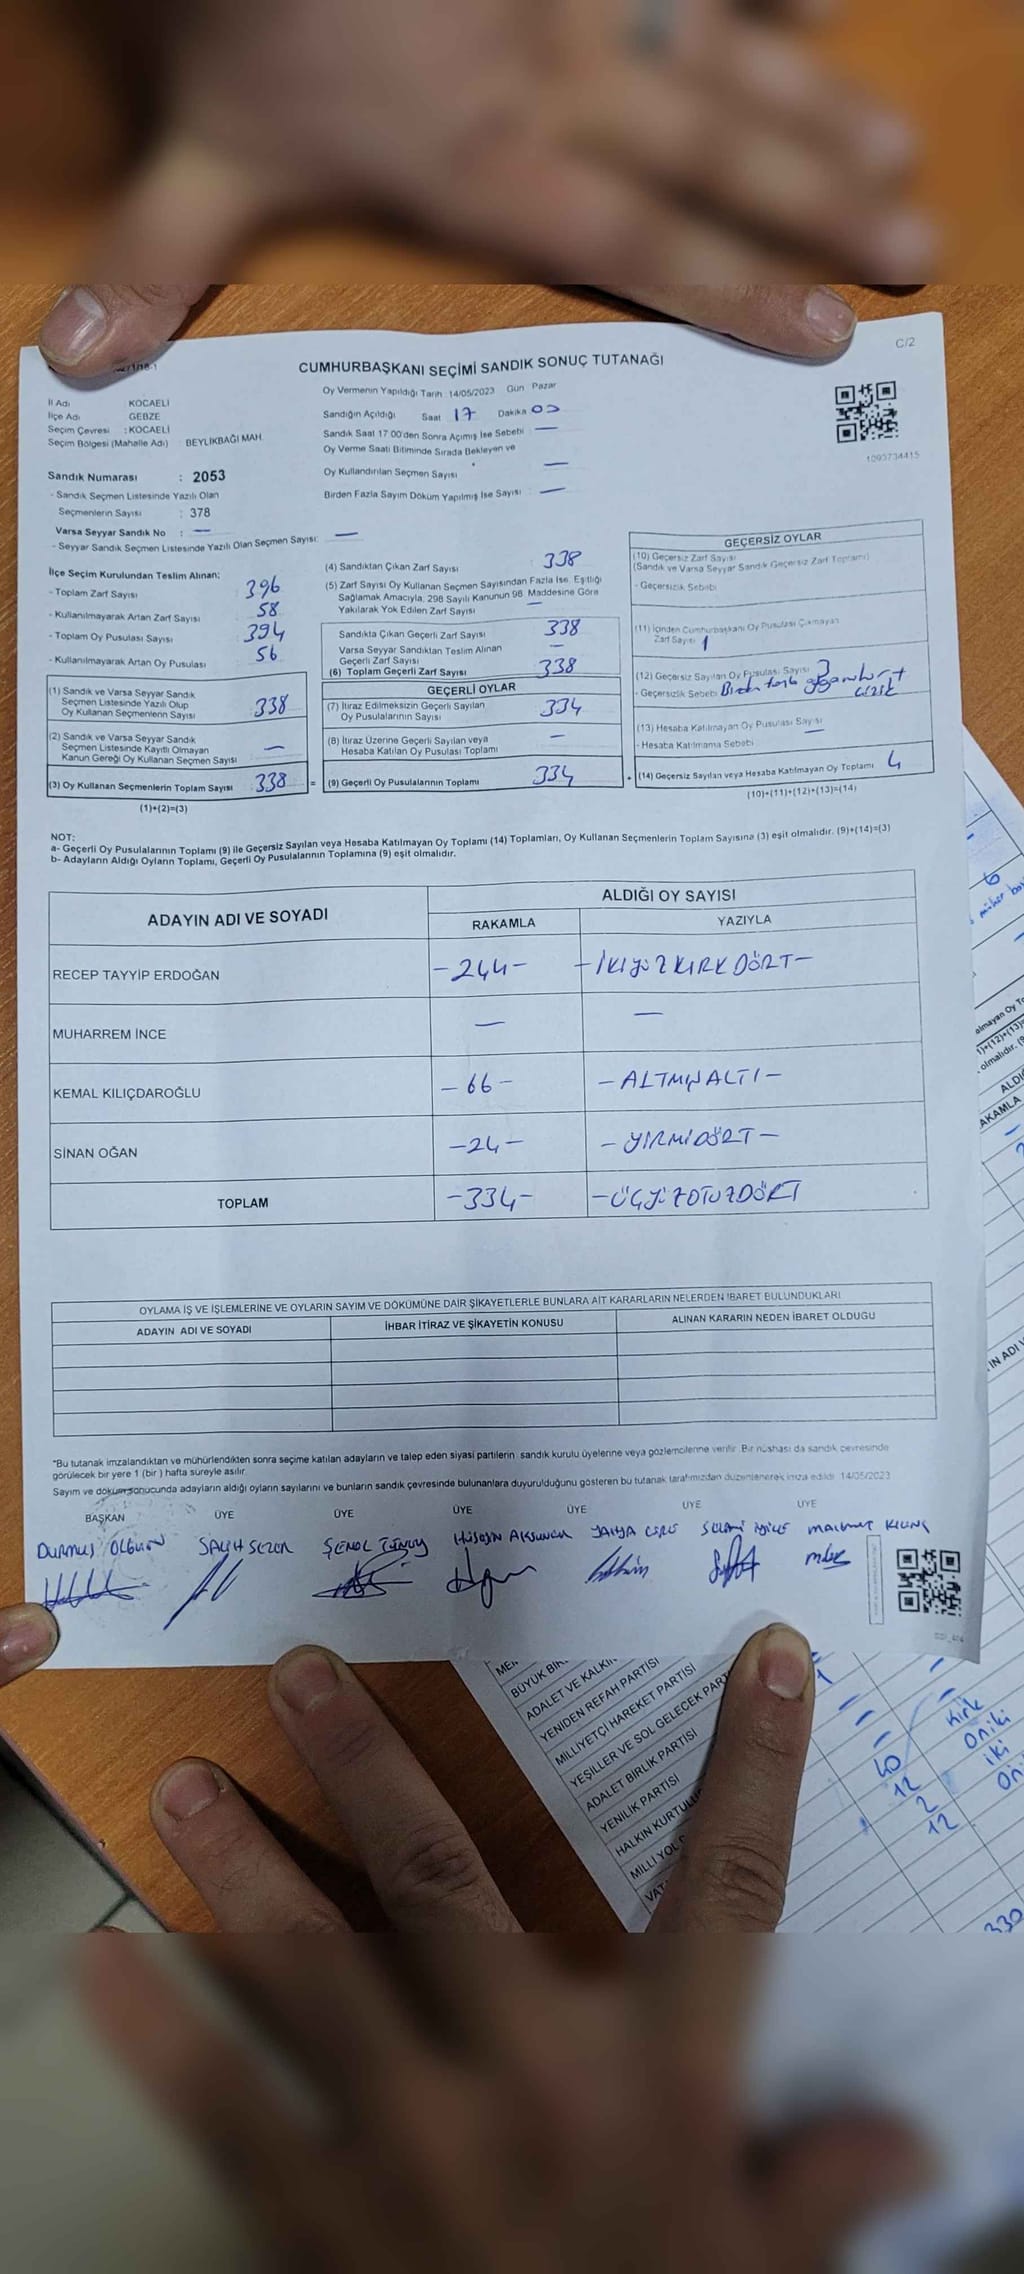 C/2
CUMHURBAŞKANI SEÇİMİ SANDIK SONUÇ TUTANAĞI
İl Adı KOCAELİ
İlçe Adı GEBZE
Seçim Çevresi : KOCAELİ
Seçim Bölgesi (Mahalle Adı) : BEYLİKBAĞI MAH.
Sandık Numarası : 2053
- Sandık Seçmen Listesinde Yazılı Olan
Seçmenlerin Sayısı : 378
Varsa Seyyar Sandık No : —
- Seyyar Sandık Seçmen Listesinde Yazılı Olan Seçmen Sayısı: —
Oy Vermenin Yapıldığı Tarih : 14/05/2023 Gün Pazar
Sandığın Açıldığı Saat 17 Dakika 00
Sandık Saat 17:00'den Sonra Açımış İse Sebebi : —
Oy Verme Saati Bitiminde Sırada Bekleyen ve
Oy Kullandırılan Seçmen Sayısı —
Birden Fazla Sayım Döküm Yapılmış İse Sayısı : —
1093734415
İlçe Seçim Kurulundan Teslim Alınan:
- Toplam Zarf Sayısı 396
- Kullanılmayarak Artan Zarf Sayısı 58
- Toplam Oy Pusulası Sayısı 394
- Kullanılmayarak Artan Oy Pusulası 56
(1) Sandık ve Varsa Seyyar Sandık
Seçmen Listesinde Yazılı Olup
Oy Kullanan Seçmenlerin Sayısı 338
(2) Sandık ve Varsa Seyyar Sandık
Seçmen Listesinde Kayıtlı Olmayan
Kanun Gereği Oy Kullanan Seçmen Sayısı —
(3) Oy Kullanan Seçmenlerin Toplam Sayısı 338 =
(1)+(2)=(3)
(4) Sandıktan Çıkan Zarf Sayısı 338
(5) Zarf Sayısı Oy Kullanan Seçmen Sayısından Fazla İse, Eşitliği
Sağlamak Amacıyla, 298 Sayılı Kanunun 98. Maddesine Göre
Yakılarak Yok Edilen Zarf Sayısı —
Sandıkta Çıkan Geçerli Zarf Sayısı 338
Varsa Seyyar Sandıktan Teslim Alınan
Geçerli Zarf Sayısı —
(6) Toplam Geçerli Zarf Sayısı 338
GEÇERLİ OYLAR
(7) İtiraz Edilmeksizin Geçerli Sayılan
Oy Pusulalarının Sayısı 334
(8) İtiraz Üzerine Geçerli Sayılan veya
Hesaba Katılan Oy Pusulası Toplamı —
(9) Geçerli Oy Pusulalarının Toplamı 334 +
GEÇERSİZ OYLAR
(10) Geçersiz Zarf Sayısı
(Sandık ve Varsa Seyyar Sandık Geçersiz Zarf Toplamı)
- Geçersizlik Sebebi
(11) İçinden Cumhurbaşkanı Oy Pusulası Çıkmayan
Zarf Sayısı 1
(12) Geçersiz Sayılan Oy Pusulası Sayısı 3
- Geçersizlik Sebebi Birden fazla
(13) Hesaba Katılmayan Oy Pusulası Sayısı —
- Hesaba Katılmama Sebebi
(14) Geçersiz Sayılan veya Hesaba Katılmayan Oy Toplamı 4
(10)+(11)+(12)+(13)=(14)
NOT:
a- Geçerli Oy Pusulalarının Toplamı (9) ile Geçersiz Sayılan veya Hesaba Katılmayan Oy Toplamı (14) Toplamları, Oy Kullanan Seçmenlerin Toplam Sayısına (3) eşit olmalıdır. (9)+(14)=(3)
b- Adayların Aldığı Oyların Toplamı, Geçerli Oy Pusulalarının Toplamına (9) eşit olmalıdır.
ADAYIN ADI VE SOYADI ALDIĞI OY SAYISI
RAKAMLA YAZIYLA
RECEP TAYYİP ERDOĞAN -244- -İKİYÜZKIRKDÖRT-
MUHARREM İNCE — —
KEMAL KILIÇDAROĞLU -66- -ALTMIŞALTI-
SİNAN OĞAN -24- -YİRMİDÖRT-
TOPLAM -334- -ÜÇYÜZOTUZDÖRT
OYLAMA İŞ VE İŞLEMLERİNE VE OYLARIN SAYIM VE DÖKÜMÜNE DAİR ŞİKAYETLERLE BUNLARA AİT KARARLARIN NELERDEN İBARET BULUNDUKLARI
ADAYIN ADI VE SOYADI İHBAR İTİRAZ VE ŞİKAYETİN KONUSU ALINAN KARARIN NEDEN İBARET OLDUĞU
*Bu tutanak imzalandıktan ve mühürlendikten sonra seçime katılan adayların ve talep eden siyasi partilerin sandık kurulu üyelerine veya gözlemcilerine verilir. Bir nüshası da sandık çevresinde
görülecek bir yere 1 (bir) hafta süreyle asılır.
Sayım ve döküm sonucunda adayların aldığı oyların sayılarını ve bunların sandık çevresinde bulunanlara duyurulduğunu gösteren bu tutanak tarafımızdan düzenlenerek imza edildi. 14/05/2023
BAŞKAN ÜYE ÜYE ÜYE ÜYE ÜYE ÜYE
DURMUŞ OLGUN SALİH SEZER ŞENOL Hüseyin AKSUNGUR YAHYA MAHMUT KILINÇ
BÜYÜK BİR
ADALET VE KALKIN
YENİDEN REFAH PARTİSİ
MİLLİYETÇİ HAREKET PARTİSİ
YEŞİLLER VE SOL GELECEK PART
ADALET BİRLİK PARTİSİ
YENİLİK PARTİSİ
HALKIN KURTULU
MİLLİ YOL
VAT
40 Kırk
12 Oniki
2 iki
12 Oni
330